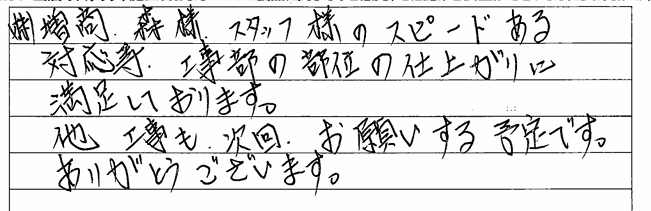 ㈱増商.森様.スタッフ様のスピードある
対応等.工事部の部位の仕上がりに
満足しております。
他 工事も.次回.お願いする予定です。
ありがとうございます。